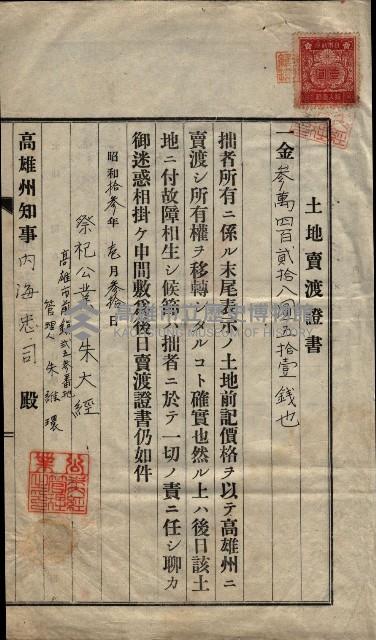 土地賣渡證書
一金參萬四百貳拾八圓五拾壹錢也
拙者所有ニ係ル末尾表示ノ土地前記價格ヲ以テ高雄州ニ
賣渡シ所有權ヲ移轉シタルコト確實也然ル上ハ後日該土
地ニ付故障相生シ候節ハ拙者ニ於テ一切ノ責ニ任シ聊カ
御迷惑相掛ケ申間敷爲後日賣渡證書仍如件
昭和拾參年壱月參拾日
祭祀公業朱大經
高雄市前鎮貳五參番地
管理人 朱維環
高雄州知事內海忠司殿
高雄市立歷史博物館